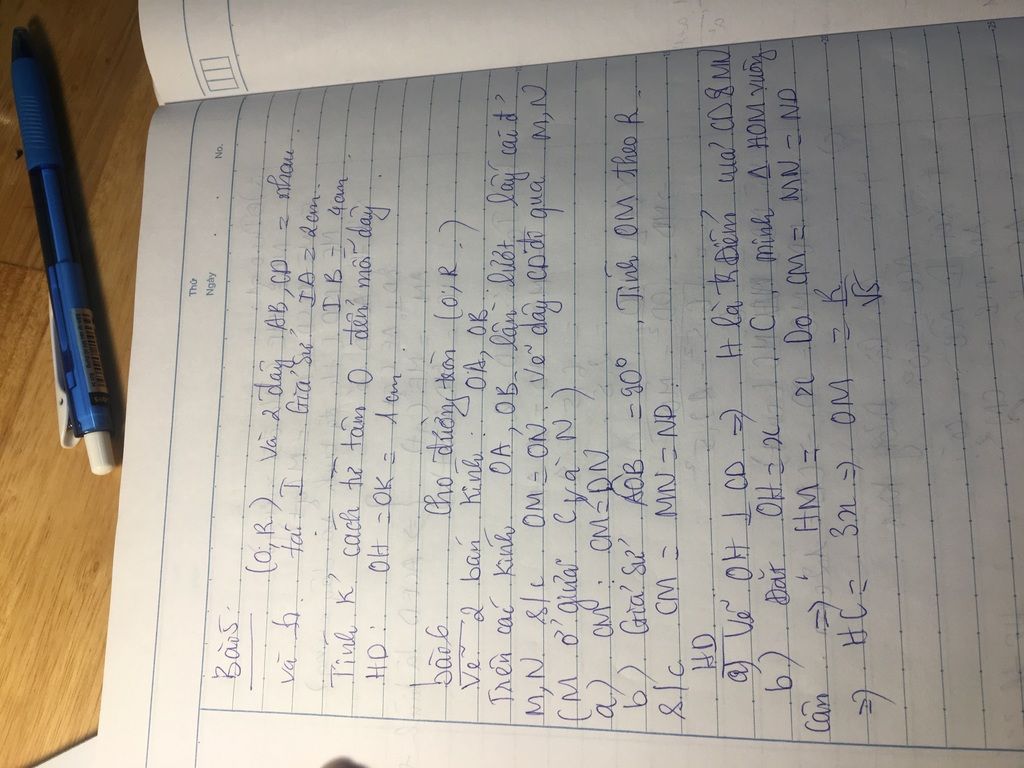 Thứ
Ngày
No.
Bài 5:
(O; R) Và 2 dây AB, CD = nhau
và ⊥ tại I Giả sử IA = 2cm
IB = 4cm
Tính K/c cách từ tâm O đến mỗi dây
HD: OH = OK = 1cm.
bài 6 Cho đường tròn (O; R)
Vẽ 2 bán kính OA, OB
Trên các bán kính OA, OB lần lượt lấy các đ'
M, N s/c OM = ON. Vẽ dây CD đi qua M, N
(M ở giữa C và N)
a) CM: CM = DN
b) Giả sử AOB = 90° Tính OM theo R
s/c CM = MN = ND
HD
a) Vẽ OH ⊥ CD => H là tr.điểm của CD & MN
b) Đặt OH = x, C minh Δ HOM vuông
cân => HM = x Do CM = MN = ND
=> HC = 3x => OM = R/√5